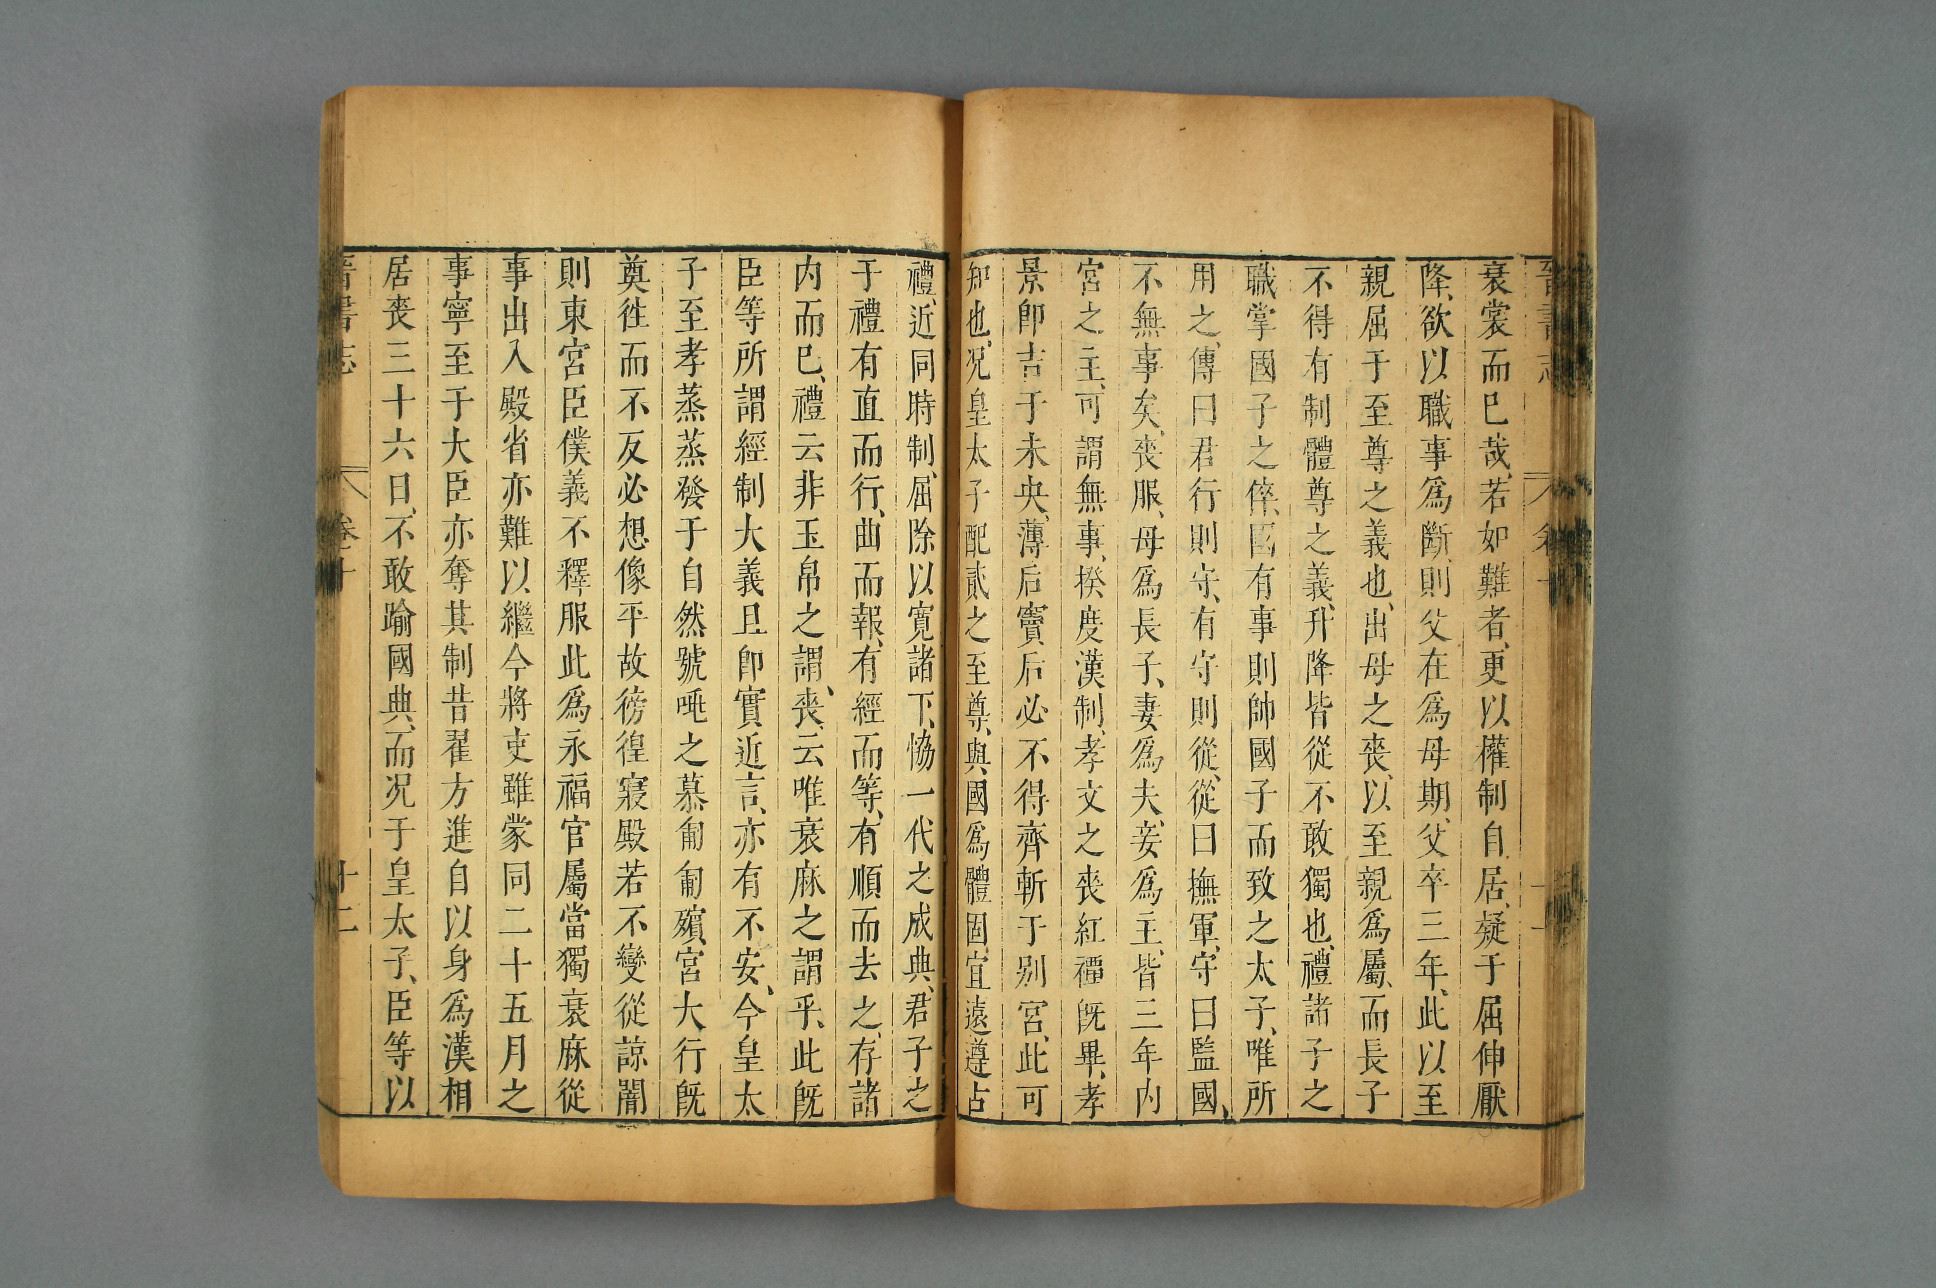 衰裳而已哉、若如難者、更以權制自居、疑于屈伸厭
降、欲以職事爲斷、則父在爲母期、父卒三年、此以至
親屈于至尊之義也、出母之喪、以至親爲屬、而長子
不得有制體尊之義、升降皆從、不敢獨也、禮諸子之
職、掌國子之倅、國有事則帥國子而致之太子、唯所
用之、傳曰君行則守、有守則從、從曰撫軍、守曰監國、
不無事矣、喪服、母爲長子、妻爲夫、妾爲主、皆三年内
宮之主、可謂無事、揆度漢制、孝文之喪紅禫既畢、孝
景即吉于未央、薄后竇后必不得齊斬于别宮、此可
知也、况皇太子配貳之至尊、與國爲體固、宜遠遵古
禮、近同時制、屈除以寛諸下、恊一代之成典、君子之
于禮有直而行、曲而報、有經而等、有順而去之、存諸
内而已、禮云非玉帛之謂、喪、云唯衰麻之謂乎、此既
臣等所謂經制大義且即實近言、亦有不安、今皇太
子至孝蒸蒸發于自然號咷之慕匍匐殯、宮大行既
奠徃而不反必想像平故徬徨寢殿若不變從諒闇
則東宮臣僕義不釋服此爲永福官屬當獨衰麻從
事出入殿省亦難以繼今將吏雖蒙同二十五月之
事寧至于大臣亦奪其制昔翟方進自以身爲漢相
居喪三十六日、不敢踰國典、而况于皇太子、臣等以
晉書志
卷十
十二